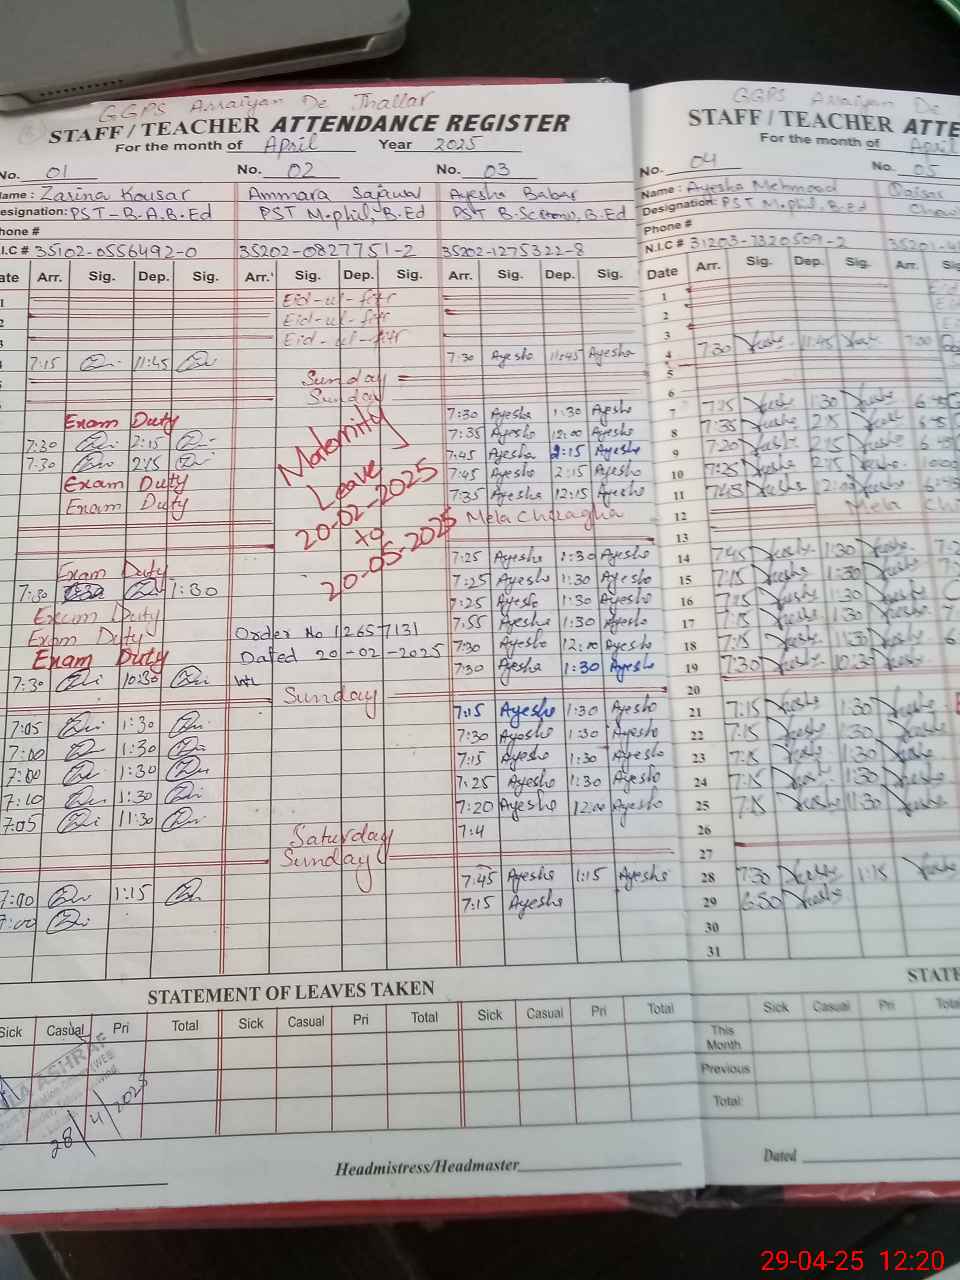 GGPS Arraiyan De Thallar
STAFF / TEACHER ATTENDANCE REGISTER
For the month of April Year 2025
No. 01 No. 02 No. 03
Name : Zarina Kousar Ammara Sajawal Ayesha Babar
Designation: PST-B.A, B.Ed PST M.phil, B.Ed PST B.Sc (Hons), B.Ed
Phone #
N.I.C # 35102-0556492-0 35202-0827751-2 35202-1275322-8
Date Arr. Sig. Dep. Sig. Arr. Sig. Dep. Sig. Arr. Sig. Dep. Sig.
1 Eid-ul-fitr
2 Eid-ul-fitr
3 Eid-ul-fitr
7:15 11:45 7:30 Ayesha 11:45 Ayesha
Sunday
Sunday
Exam Duty 7:30 Ayesha 1:30 Ayesha
7:30 2:15 7:35 Ayesha 12:00 Ayesha
7:30 2:15 7:45 Ayesha 2:15 Ayesha
Exam Duty 7:45 Ayesha 2:15 Ayesha
Exam Duty 7:35 Ayesha 12:15 Ayesha
Mela Chiragha
Maternity
Leave
20-02-2025
to
20-05-2025
Exam Duty 7:25 Ayesha 1:30 Ayesha
7:30 1:30 7:25 Ayesha 1:30 Ayesha
Exam Duty 7:25 Ayesha 1:30 Ayesha
Exam Duty Order No 12657131 7:55 Ayesha 1:30 Ayesha
Exam Duty Dated 20-02-2025 7:30 Ayesha 12:00 Ayesha
7:30 10:30 7:30 Ayesha 1:30 Ayesha
Sunday
7:05 1:30 7:15 Ayesha 1:30 Ayesha
7:00 1:30 7:30 Ayesha 1:30 Ayesha
7:00 1:30 7:15 Ayesha 1:30 Ayesha
7:10 1:30 7:25 Ayesha 1:30 Ayesha
7:05 11:30 7:20 Ayesha 12:00 Ayesha
Saturday 7:4
Sunday
7:00 1:15 7:45 Ayesha 1:15 Ayesha
7:00 7:15 Ayesha
STATEMENT OF LEAVES TAKEN
Sick Casual Pri Total Sick Casual Pri Total Sick Casual Pri Total
ASHRAF
28/4/2025
Headmistress/Headmaster
GGPS Arraiyan De
STAFF / TEACHER ATTE
For the month of April
No. 04 No. 05
Name : Ayesha Mehmood
Designation: PST M.phil, B.Ed
Phone #
N.I.C # 31203-7320509-2
Date Arr. Sig. Dep. Sig. Arr.
1
2
3
4 7:30 11:45 7:00
5
6
7 7:25 1:30
8 7:35 2:15
9 7:20 2:15
10 7:25 2:15
11 7:45 2:00
12 Mela
13
14 7:45 1:30
15 7:15 1:30
16 7:15 1:30
17 7:15 1:30
18 7:15 11:30
19 7:30 10:30
20
21 7:15 1:30
22 7:15 1:30
23 7:15 1:30
24 7:15 1:30
25 7:15 11:30
26
27
28 7:30 1:15
29 6:50
30
31
STATE
Sick Casual Pri Total
This
Month
Previous
Total:
Dated
29-04-25 12:20